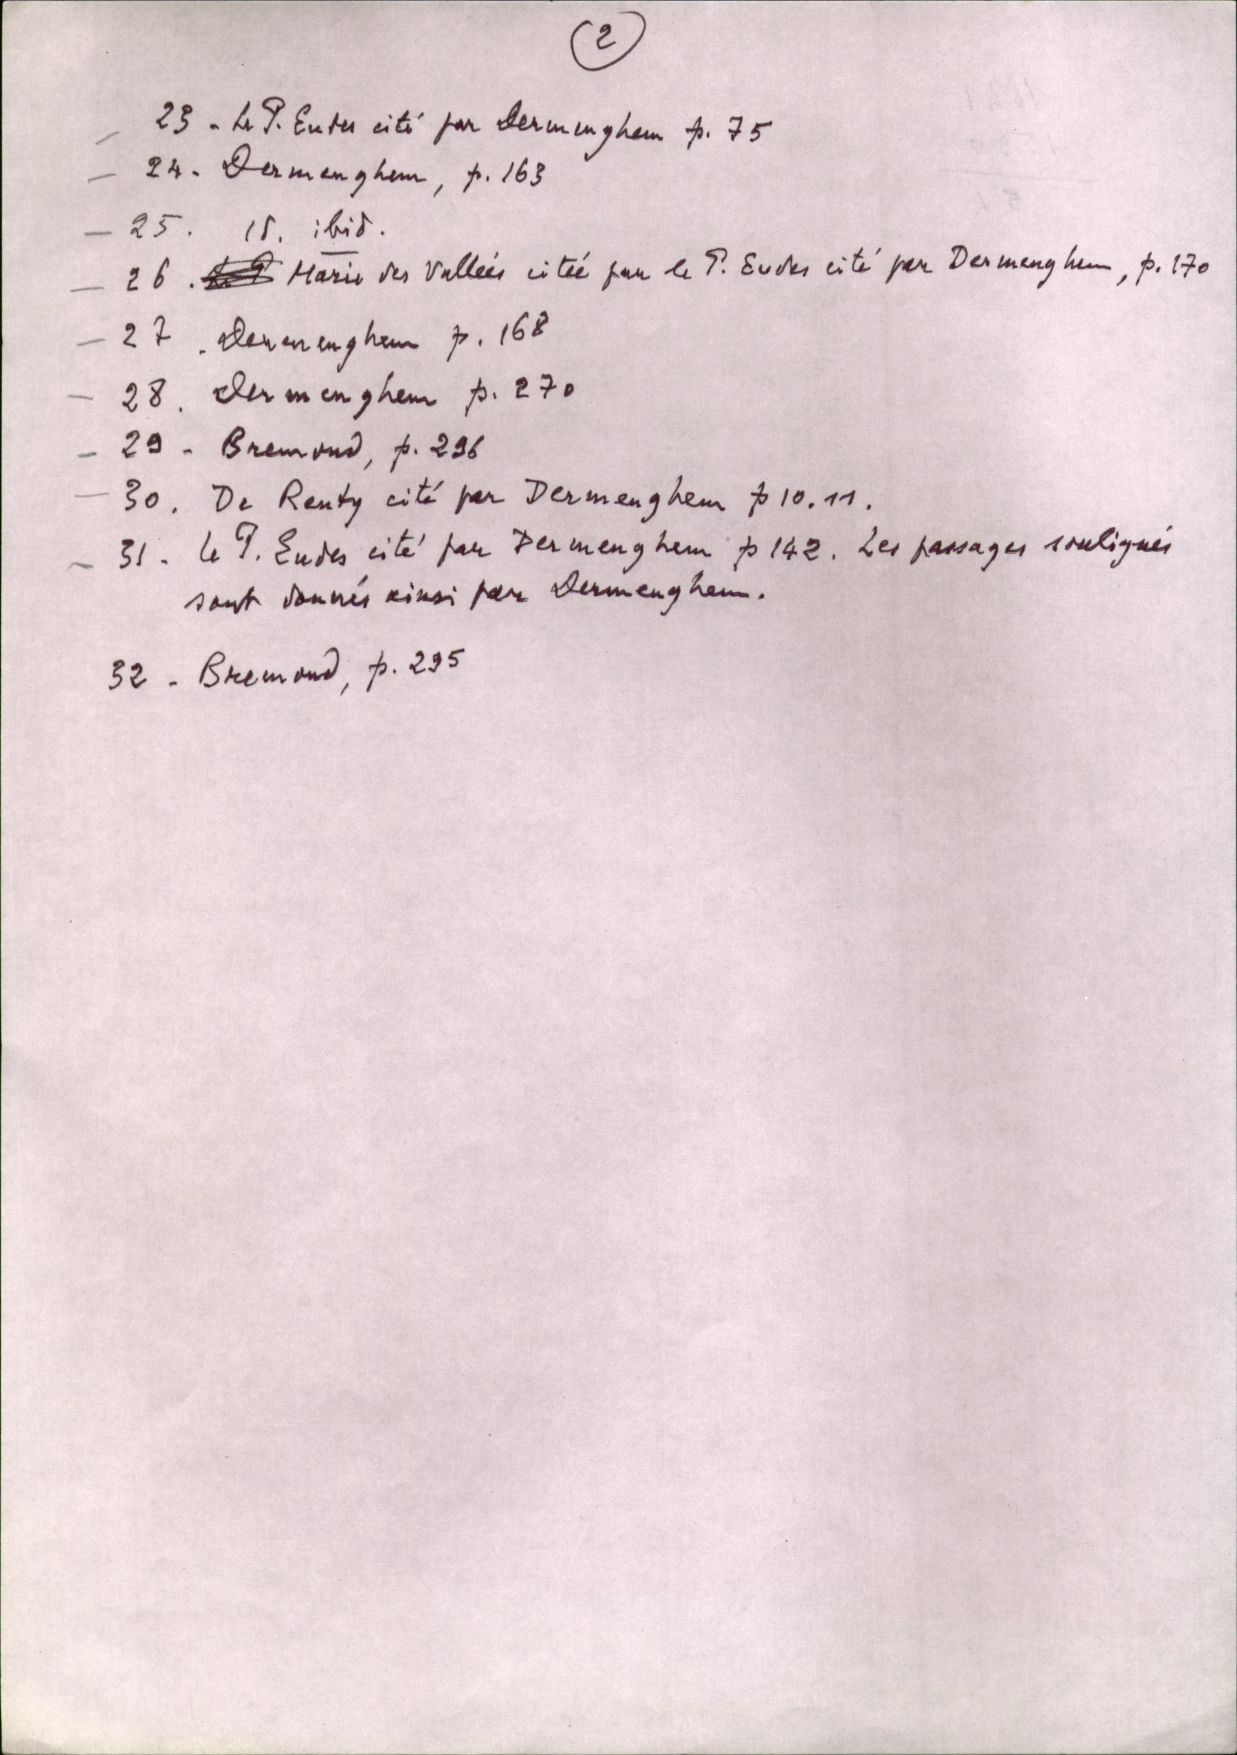 2
23 - Le P. Eudes cité par Dermenghem p. 75
— 24. Dermenghem, p. 163
— 25. id. ibid.
— 26. Marie des Vallées citée par le P. Eudes cité par Dermenghem, p. 170
— 27. Dermenghem p. 168
— 28. Dermenghem p. 270
— 29 - Bremond, p. 296
— 30. De Renty cité par Dermenghem p 10.11.
— 31. Le P. Eudes cité par Dermenghem p 142. Les passages soulignés
sont donnés ainsi par Dermenghem.
32 - Bremond, p. 295